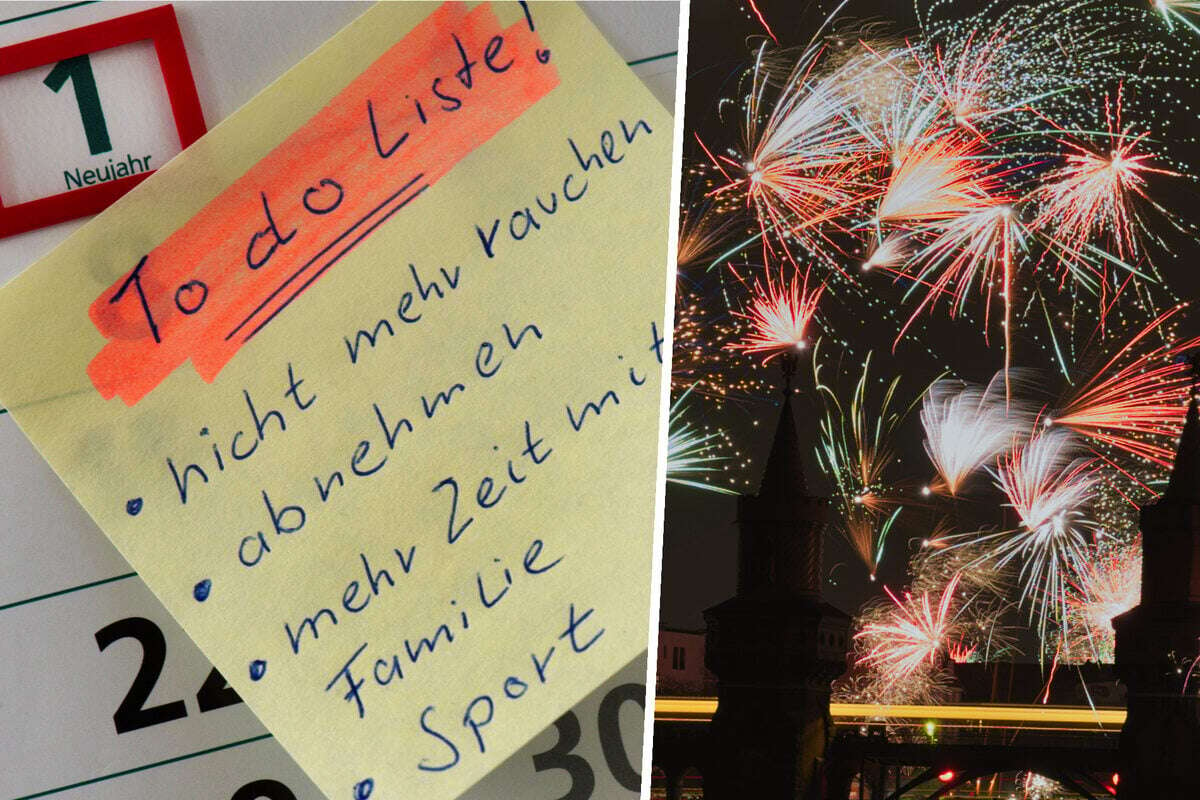 1
Neujahr
To do Liste!
• nicht mehr rauchen
• abnehmen
• mehr Zeit mit
Familie
• Sport
22
30